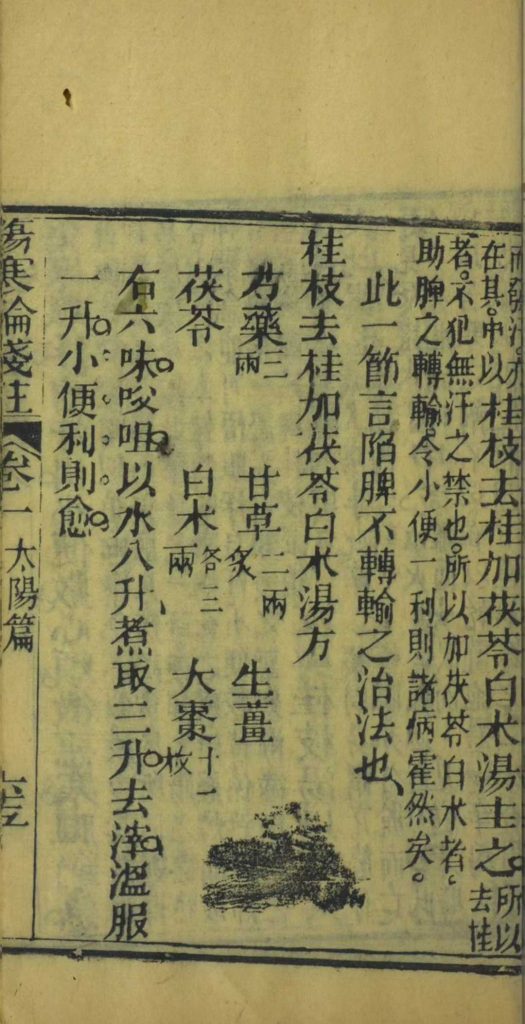 而發汗。亦在其。中以桂枝去桂加茯苓白朮湯主之。所以去桂
者。不犯無汗之禁也。所以加茯苓白朮者。
助脾之轉輸。令小便一利則諸病霍然矣。
此一節言陷脾不轉輸之治法也、
桂枝去桂加茯苓白朮湯方
芍藥三兩 甘草二兩炙 生薑
茯苓 白朮各三兩 大棗十二枚
右六味。㕮咀。以水八升、煮取三升。去滓。溫服
一升。小便利則愈。
傷寒論淺註 卷一 太陽篇